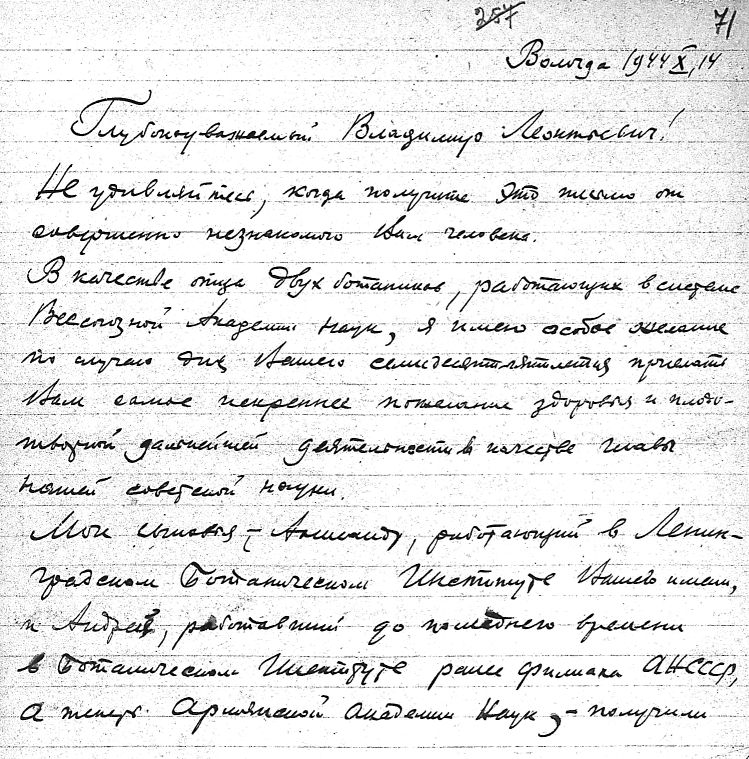 257 71
Вологда 1944 X, 14
Глубокоуважаемый Владимир Леонтьевич!
Не удивляйтесь, когда получите это письмо от
совершенно незнакомого Вам человека.
В качестве отца двух ботаников, работающих в системе
Всесоюзной Академии Наук, я имею особое желание
по случаю дня Вашего семидесятипятилетия прислать
Вам самое искреннее пожелание здоровья и плодо-
творной дальнейшей деятельности в качестве главы
нашей советской науки.
Мои сыновья – Александр, работающий в Ленин-
градском Ботаническом Институте Вашего имени,
и Андрей, работавший до последнего времени
в Ботаническом Институте ранее филиала АН СССР,
а теперь Армянской Академии Наук, – получили